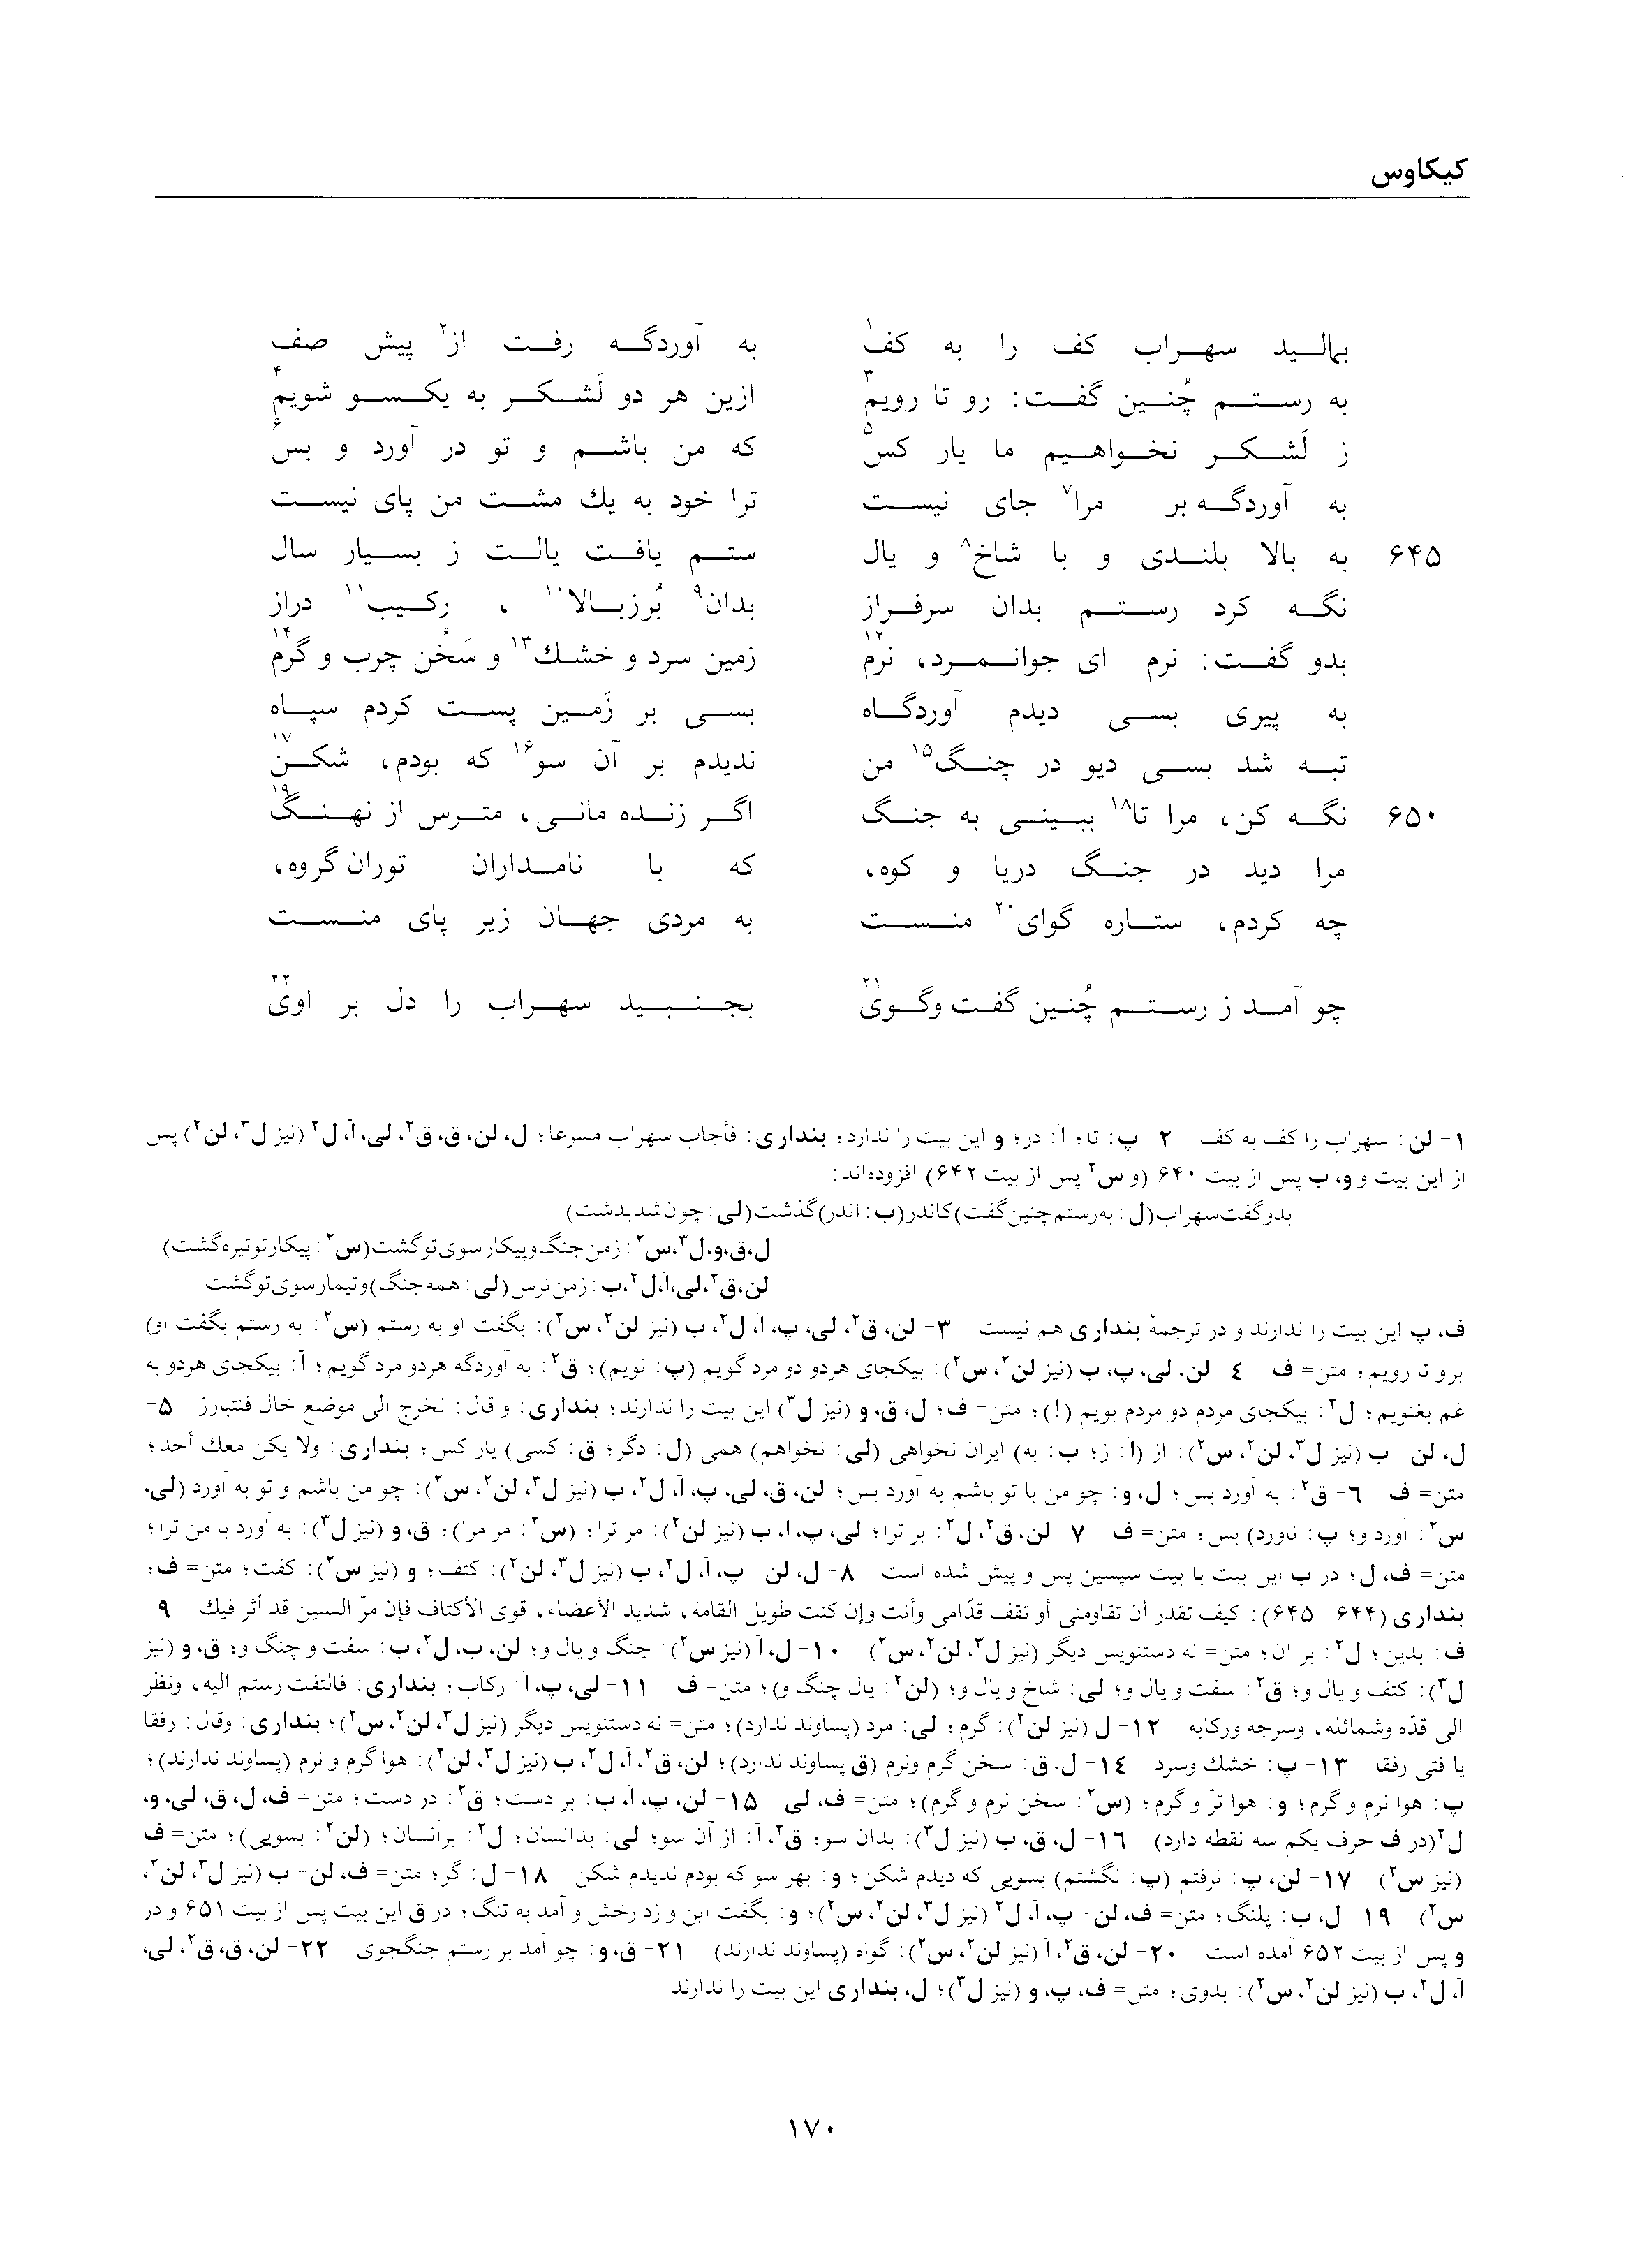 کیکاوس
بمالید سهراب کف را به کف۱ به آوردگه رفت از۲ پیش صف
به رستم چُنین گفت: رو تا رویم۳ ازین هر دو لَشکر به یکسو شویم۴
ز لَشکر نخواهیم ما یار کس۵ که من باشم و تو در آورد و بس۶
به آوردگه بر مرا۷ جای نیست ترا خود به یك مشت من پای نیست
۶۴۵ به بالا بلندی و با شاخ۸ و یال ستم یافت یالت ز بسیار سال
نگه کرد رستم بدان سرفراز بدان۹ بُرزبالا۱۰ ، رکیب۱۱ دراز
بدو گفت: نرم ای جوانمرد، نرم۱۲ زمین سرد و خشك۱۳ و سَخُن چرب و گرم۱۴
به پیری بسی دیدم آوردگاه بسی بر زَمین پست کردم سپاه
تبه شد بسی دیو در چنگ۱۵ من ندیدم بر آن سو۱۶ که بودم، شکن۱۷
۶۵۰ نگه کن، مرا تا۱۸ ببینی به جنگ اگر زنده مانی، مترس از نهنگ۱۹
مرا دید در جنگ دریا و کوه، که با نامداران توران گروه،
چه کردم، ستاره گوای۲۰ منست به مردی جهان زیر پای منست
چو آمد ز رستم چُنین گفت وگوی۲۱ بجنبید سهراب را دل بر اوی۲۲
۱- لن: سهراب را کف به کف ۲- پ: تا؛ آ: در؛ و این بیت را ندارد؛ بنداری: فأجاب سهراب مسرعا؛ ل، لن، ق، ق۲، لی، آ، ل۲ (نیز ل۳، لن۲) پس
از این بیت و و، ب پس از بیت ۶۴۰ (و س۲ پس از بیت ۶۴۲) افزوده‌اند:
بدو گفت سهراب (ل: به رستم چنین گفت) کاندر (ب: اندر) گذشت (لی: چون شد بدشت)
ل، ق، و، ل۳، س۲: زمن جنگ و پیکار سوی تو گشت (س۲: پیکار تو تیره گشت)
لن، ق۲، لی، آ، ل۲، ب: زمن ترس (لی: همه جنگ) و تیمار سوی تو گشت
ف، پ این بیت را ندارند و در ترجمهٔ بنداری هم نیست ۳- لن، ق۲، لی، پ، آ، ل۲، ب (نیز لن۲، س۲): بگفت او به رستم (س۲: به رستم بگفت او)
برو تا رویم؛ متن= ف ٤- لن، لی، پ، ب (نیز لن۲، س۲): بیکجای هردو دو مرد گویم (پ: نویم)؛ ق۲: به آوردگه هردو مرد گویم؛ آ: بیکجای هردو به
غم بغنویم؛ ل۲: بیکجای مردم دو مردم بویم (!)؛ متن= ف؛ ل، ق، و (نیز ل۳) این بیت را ندارند؛ بنداری: و قال: نخرج الی موضع خال فنتبارز ۵-
ل، لن- ب (نیز ل۳، لن۲، س۲): از (آ: ز؛ ب: به) ایران نخواهی (لی: نخواهم) همی (ل: دگر؛ ق: کسی) یار کس؛ بنداری: ولا یکن معك أحد؛
متن= ف ٦- ق۲: به آورد بس؛ ل، و: چو من با تو باشم به آورد بس؛ لن، ق، لی، پ، آ، ل۲، ب (نیز ل۳، لن۲، س۲): چو من باشم و تو به آورد (لی،
س۲: آورد و؛ پ: ناورد) بس؛ متن= ف ۷- لن، ق۲، ل۲: بر ترا؛ لی، پ، آ، ب (نیز لن۲): مر ترا؛ (س۲: مر مرا)؛ ق، و (نیز ل۳): به آورد با من ترا؛
متن= ف، ل؛ در ب این بیت با بیت سپسین پس و پیش شده است ۸- ل، لن- پ، آ، ل۲، ب (نیز ل۳، لن۲): کتف؛ و (نیز س۲): کفت؛ متن= ف؛
بنداری (۶۴۴- ۶۴۵): کیف تقدر أن تقاومنی أو تقف قدّامی وأنت وإن کنت طویل القامة، شدید الأعضاء، قوی الأکتاف فإن مرّ السنین قد أثر فیك ۹-
ف: بدین؛ ل۲: بر آن؛ متن= نه دستنویس دیگر (نیز ل۳، لن۲، س۲) ۱۰- ل، آ (نیز س۲): چنگ و یال و؛ لن، ب، ل۲، ب: سفت و چنگ و؛ ق، و (نیز
ل۳): کتف و یال و؛ ق۲: سفت و یال و؛ لی: شاخ و یال و؛ (لن۲: یال چنگ و)؛ متن= ف ۱۱- لی، پ، آ: رکاب؛ بنداری: فالتفت رستم الیه، ونظر
الی قدّه وشمائله، وسرجه ورکابه ۱۲- ل (نیز لن۲): گرم؛ لی: مرد (پساوند ندارد)؛ متن= نه دستنویس دیگر (نیز ل۳، لن۲، س۲)؛ بنداری: وقال: رفقا
یا فتی رفقا ۱۳- پ: خشك وسرد ١٤- ل، ق: سخن گرم ونرم (ق پساوند ندارد)؛ لن، ق۲، آ، ل۲، ب (نیز ل۳، لن۲): هوا گرم و نرم (پساوند ندارند)؛
پ: هوا نرم و گرم؛ و: هوا ترّ و گرم؛ (س۲: سخن نرم و گرم)؛ متن= ف، لی ۱۵- لن، پ، آ، ب: بر دست؛ ق۲: در دست؛ متن= ف، ل، ق، لی، و،
ل۲ (در ف حرف یکم سه نقطه دارد) ۱٦- ل، ق، ب (نیز ل۳): بدان سو؛ ق۲، آ: از آن سو؛ لی: بدانسان؛ ل۲: برآنسان؛ (لن۲: بسویی)؛ متن= ف
(نیز س۲) ۱۷- لن، پ: نرفتم (پ: نگشتم) بسویی که دیدم شکن؛ و: بهر سو که بودم ندیدم شکن ۱۸- ل: گر؛ متن= ف، لن- ب (نیز ل۳، لن۲،
س۲) ۱۹- ل، ب: پلنگ؛ متن= ف، لن- پ، آ، ل۲ (نیز ل۳، لن۲، س۲)؛ و: بگفت این و زد رخش و آمد به تنگ؛ در ق این بیت پس از بیت ۶۵۱ و در
و پس از بیت ۶۵۲ آمده است ۲۰- لن، ق۲، آ (نیز لن۲، س۲): گواه (پساوند ندارند) ۲۱- ق، و: چو آمد بر رستم جنگجوی ۲۲- لن، ق، ق۲، لی،
آ، ل۲، ب (نیز لن۲، س۲): بدوی؛ متن= ف، پ، و (نیز ل۳)؛ ل، بنداری این بیت را ندارند
۱۷۰